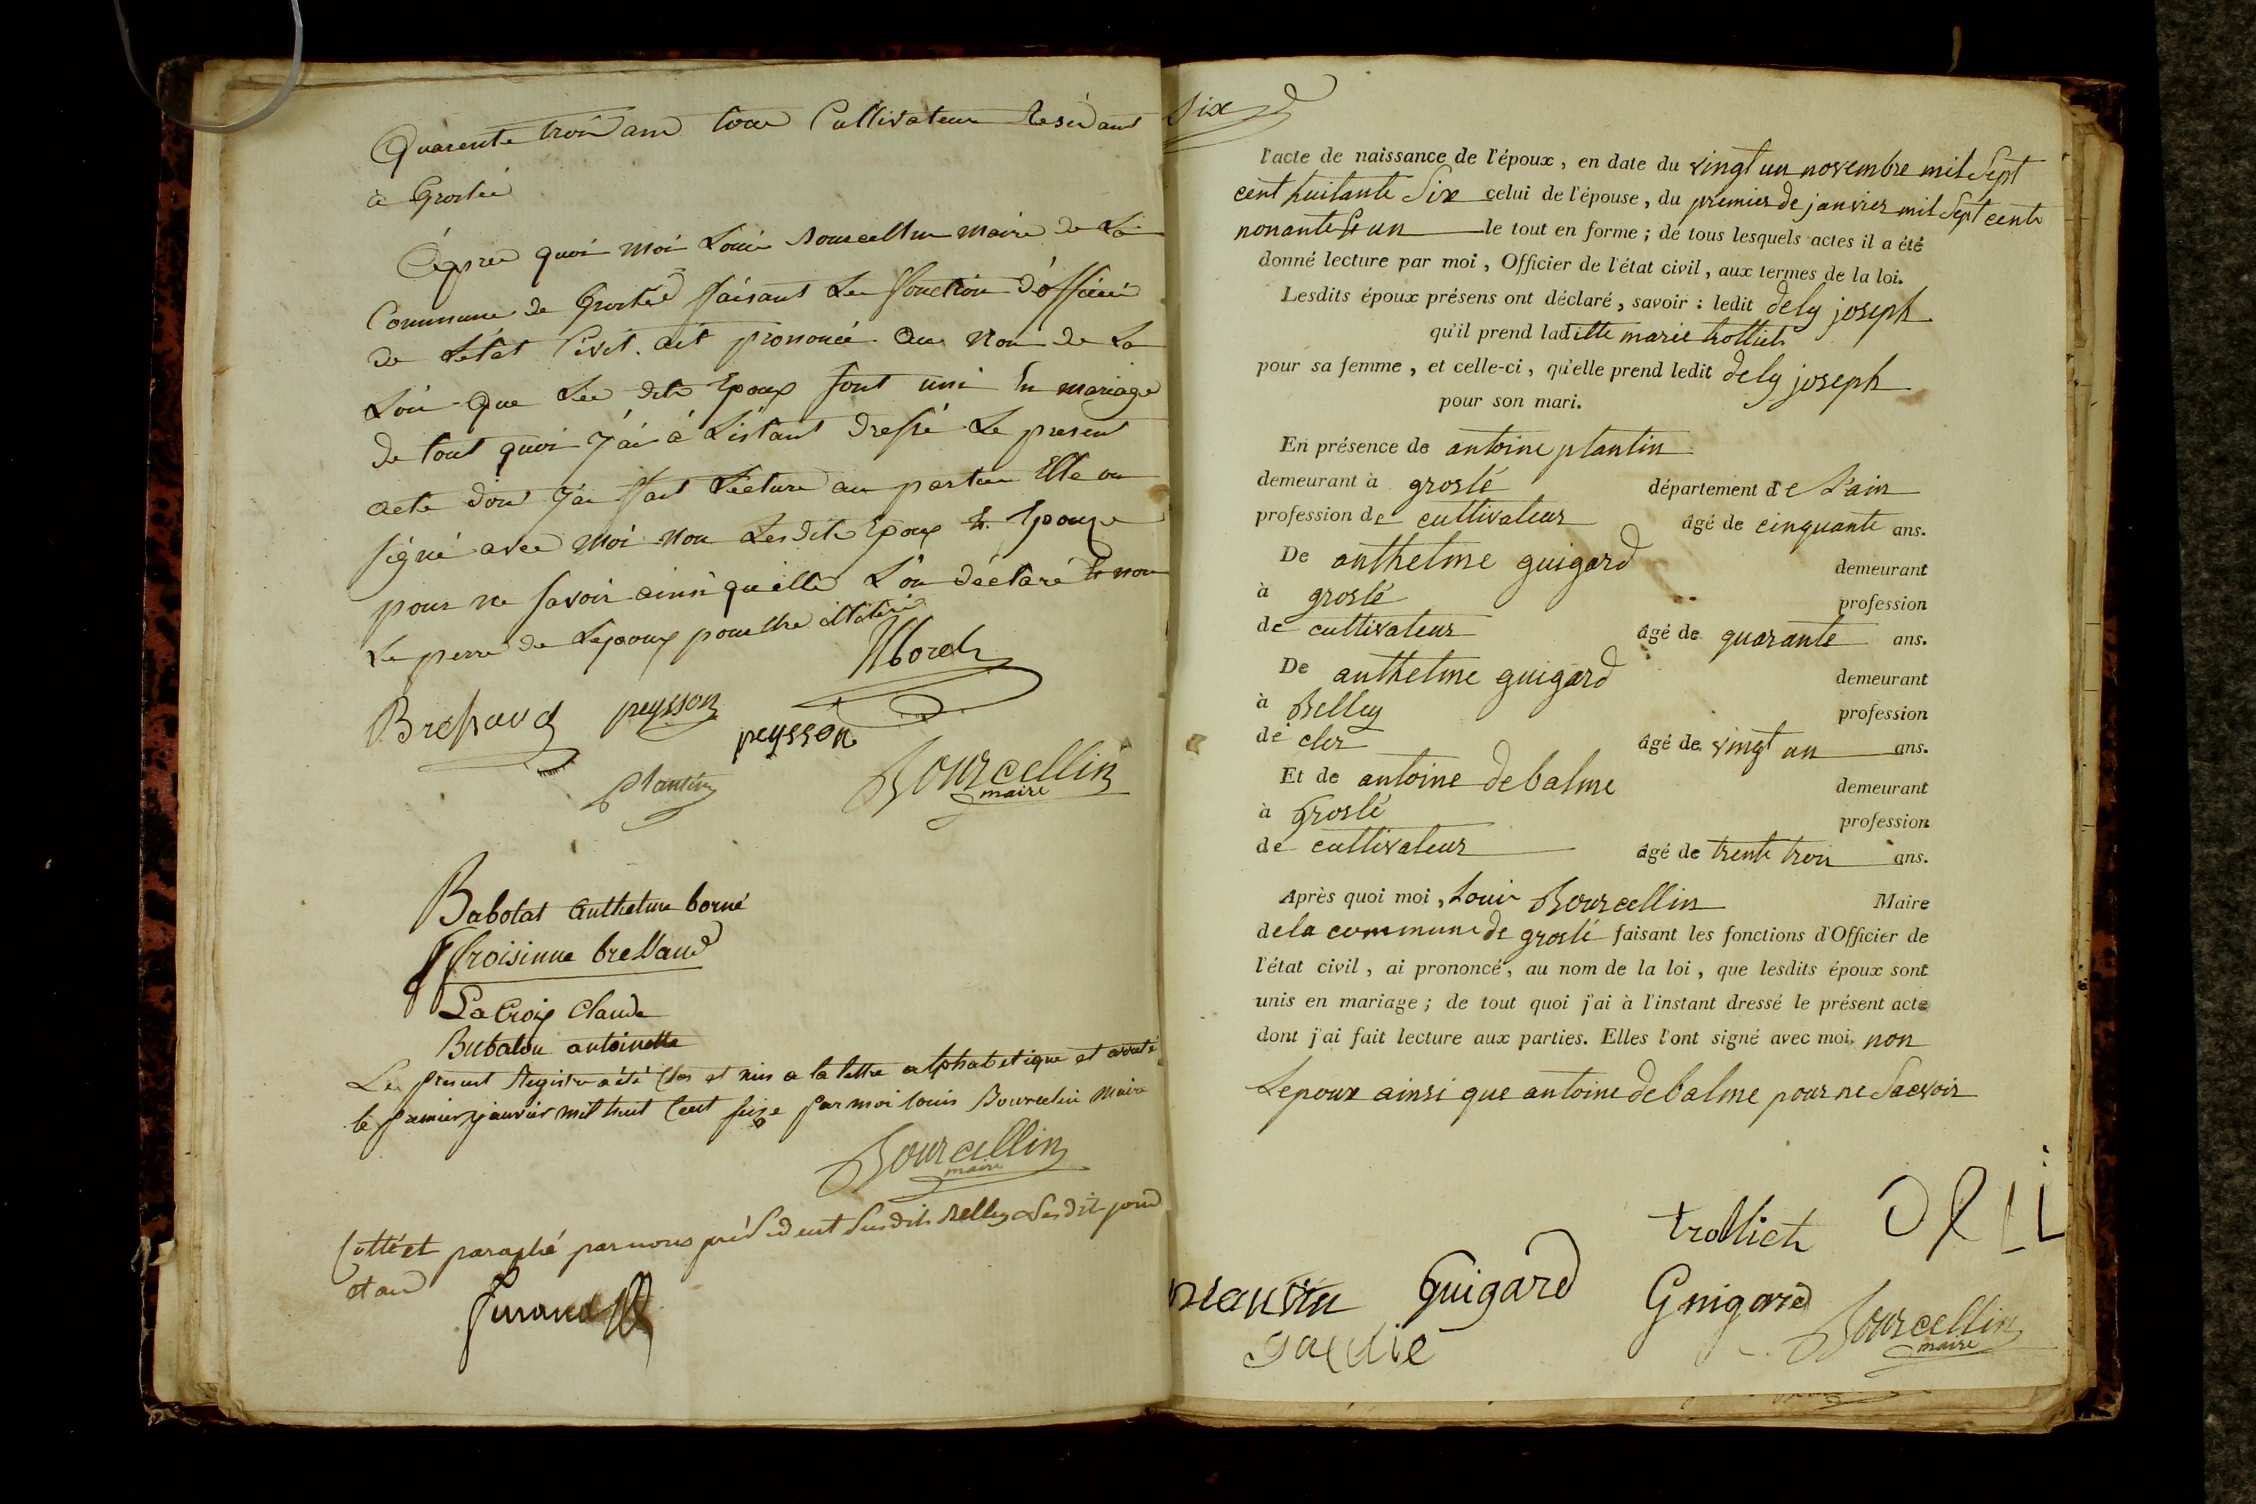 Quarente trois ans tous Cultivateur Residant
à Groslée
Après quoi moi Louis Bourcellin maire de La
Commune de Groslée faisant Les fonction d'officié
de L'état Civil. ait prononcé au Nom de La
Loix que Les dits Epoux sont uni En mariage
de tout quoi J'ai à L'istant dressé Le present
acte dont J'ai fait Lecture au parties Elle on
signé avec moi non Lesdits Epoux Et Epouze
pour ne savoir ainsi qu'elle L'on déclaré Et non
Le perre de Lepoux pour être illiteré
Bressaud
peysson
peysson
Plantin
Bourcellin
maire
Babolat anthelme borné
ffroisinne bressaud
La Croix Claude
Bubaton antoinette
Le present Registre a été Clos et mis a la lettre alphabetique et arreté
le premier janvier mil huit Cent seize par moi louis Bourcelin Maire
Bourcellin
maire
Cotté et paraphé par nous président susdit Belley Lesdit jour
et an
Six
l'acte de naissance de l'époux, en date du vingt un novembre mil Sept
cent huitante Six celui de l'épouse, du premier de janvier mil Sept cents
nonante Et un le tout en forme ; de tous lesquels actes il a été
donné lecture par moi, Officier de l'état civil, aux termes de la loi.
Lesdits époux présens ont déclaré, savoir : ledit dely joseph
qu'il prend laditte marie trolliet
pour sa femme, et celle-ci, qu'elle prend ledit dely joseph
pour son mari.
En présence de antoine plantin
demeurant à groslé département de L'ain
profession de cultivateur âgé de cinquante ans.
De anthelme guigard demeurant
à groslé profession
de cultivateur âgé de quarante ans.
De anthelme guigard demeurant
à Belley profession
de cler âgé de vingt un ans.
Et de antoine debalme demeurant
à Groslé profession
de cultivateur âgé de trente trois ans.
Après quoi moi, Louis Bourcellin Maire
de la commune de groslé faisant les fonctions d'Officier de
l'état civil, ai prononcé, au nom de la loi, que lesdits époux sont
unis en mariage ; de tout quoi j'ai à l'instant dressé le présent acte
dont j'ai fait lecture aux parties. Elles l'ont signé avec moi, non
Lepoux ainsi que antoine debalme pour ne Saevoir
trolliet
Guigard
Guigard
Bourcellin
maire